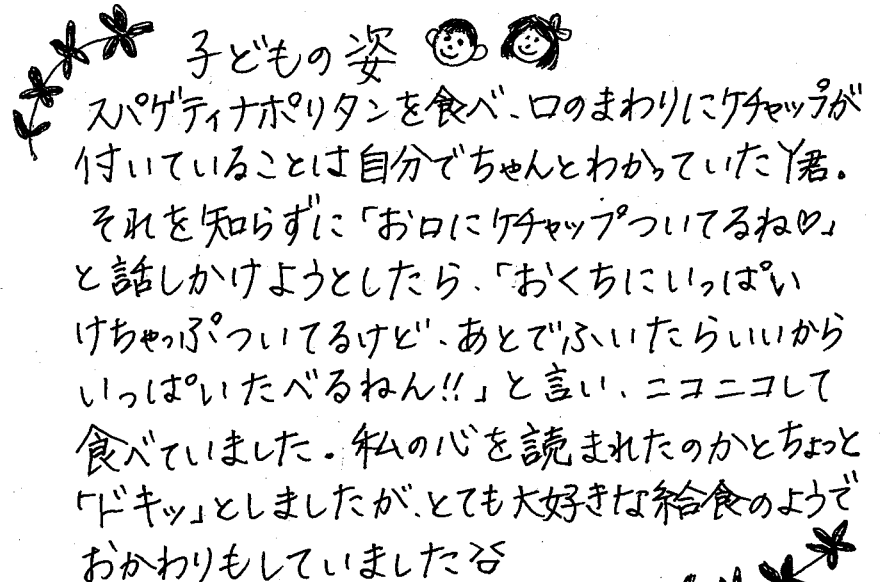 子どもの姿
スパゲティナポリタンを食べ、口のまわりにケチャップが
付いていることは自分でちゃんとわかっていたY君。
それを知らずに「お口にケチャップついてるね♡」
と話しかけようとしたら、「おくちにいっぱい
けちゃっぷついてるけど、あとでふいたらいいから
いっぱいたべるねん!!」と言い、ニコニコして
食べていました。私の心を読まれたのかとちょっと
「ドキッ」としましたが、とても大好きな給食のようで
おかわりもしていました